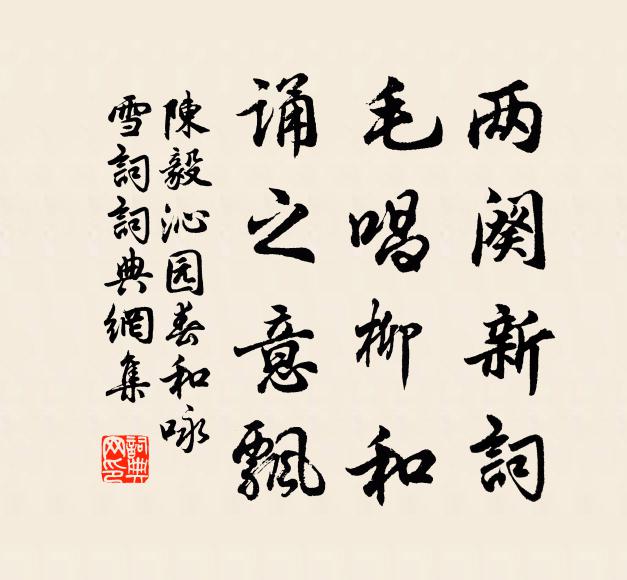 两阕新詞
毛唱柳和
誦之意飄
陳毅沁园春和咏
雪詞詞典網集
詞典网印